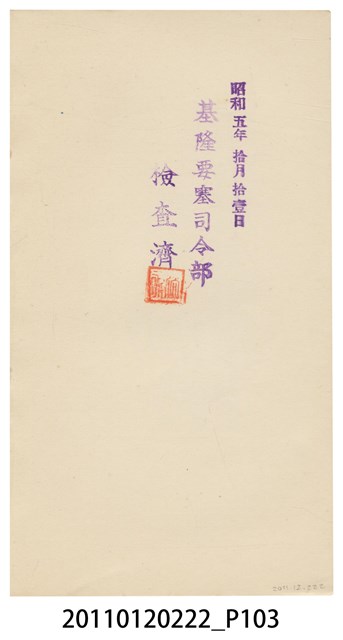 昭和五年拾月拾壹日
基隆要塞司令部
檢查濟
20110120222_P103